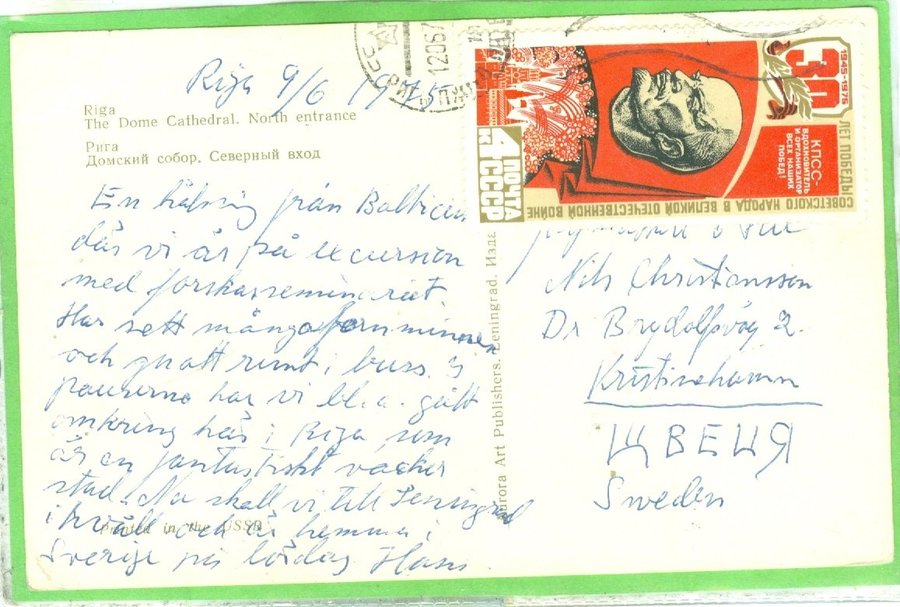 Riga 9/6 1975
Riga
The Dome Cathedral. North entrance
Рига
Домский собор. Северный вход
En hälsning från Balticum
där vi är på excursion
med forskarseminariet.
Har sett många fornminnen
och gnatt runt i buss. I
pauserna har vi bl.a. gått
omkring här i Riga som
är en fantastiskt vacker
stad. Nu skall vi till Leningrad
i kväll och är hemma i
Sverige på lördag Hans
Printed in the USSR
Aurora Art Publishers. Leningrad. Изда
120675
1945-1975
30
ЛЕТ ПОБЕДЫ
СОВЕТСКОГО НАРОДА В ВЕЛИКОЙ ОТЕЧЕСТВЕННОЙ ВОЙНЕ
КПСС-
ВДОХНОВИТЕЛЬ
И ОРГАНИЗАТОР
ВСЕХ НАШИХ
ПОБЕД!
4 К
ПОЧТА
СССР
Nils Christiansson
Dr Brydolfsväg 2.
Kristinehamn
ЦВЕЦЯ
Sweden